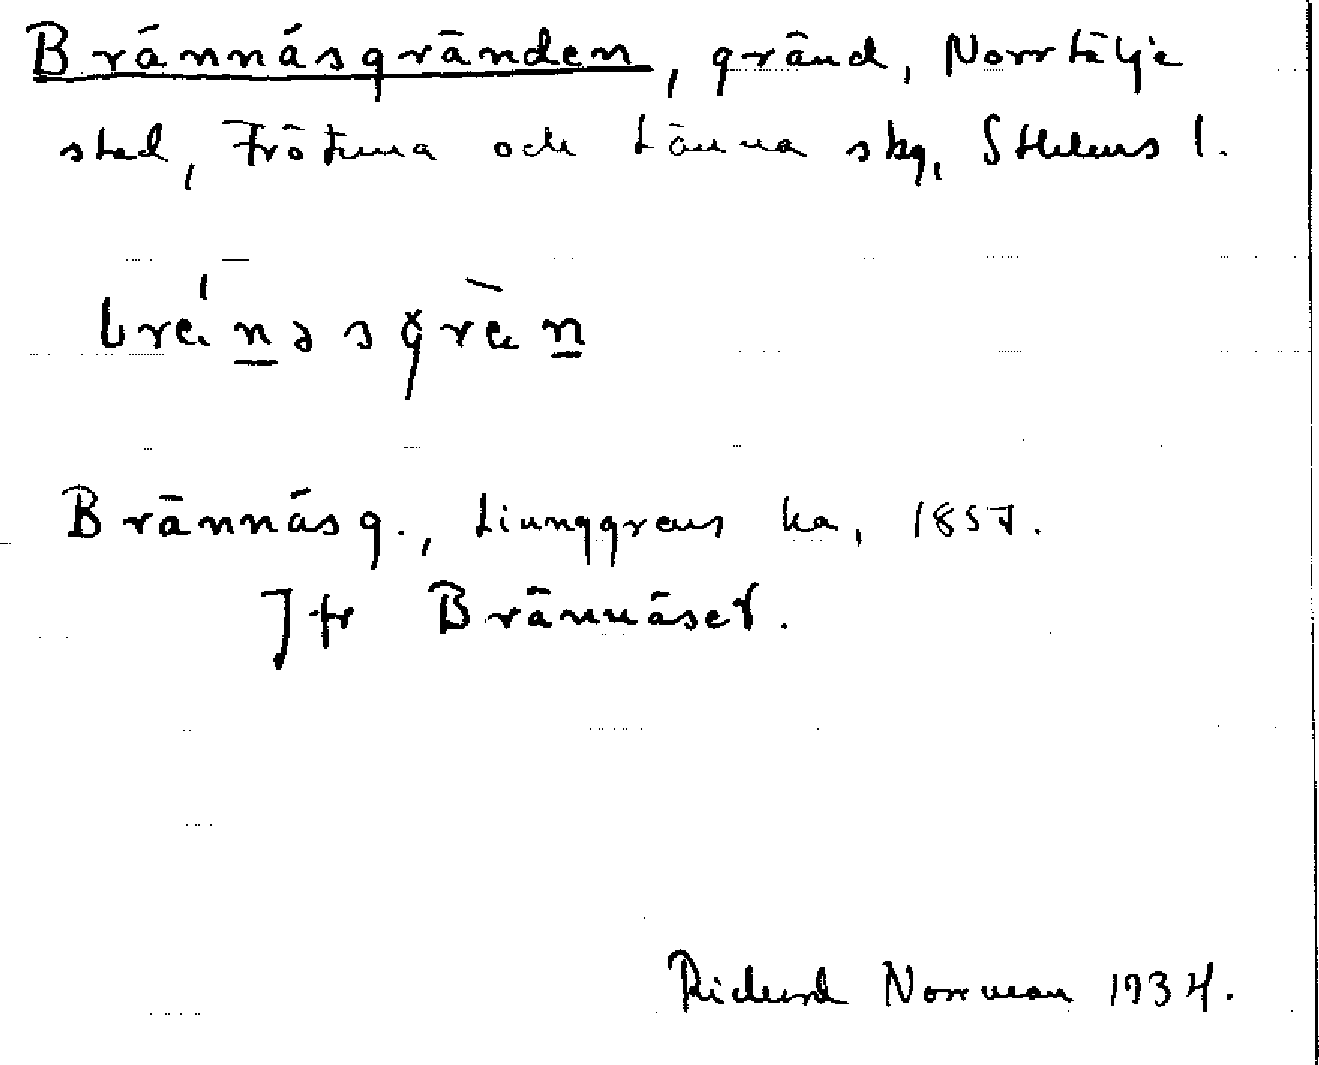 Brännåsgränden, gränd, Norrtälje
stad, Frötuna och Länna skg, Sthlms l.
Brännåsg., Ljunggrens ka, 1857.
Jfr Brännåset.
Richard Norrman 1934.